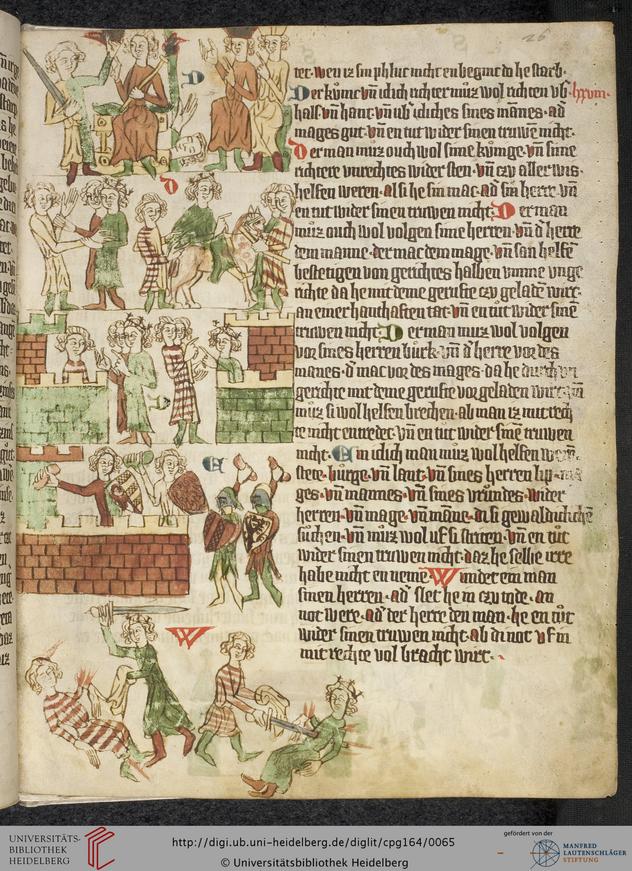 26
ter· wen iz sin phlut nicht en beginit da he starb·
Der kunic vn̄ iclich richter mūz wol richten vb'· lxxviii·
hals vn̄ hant· vn̄ ub' icliches sines mānes· ad'
mages gut· vn̄ en tut wider sinen truwē nicht·
Der man mūz ouch wol sime kunige· vn̄ sime
richtere unrechtes wider sten· vn̄ czu aller wis·
helfen weren· al si he sin mac· ad' sin herre· vn̄
en tut wider sinen truwen nicht· Der man
mūz ouch wol volgen sime herren· vn̄ d' herre
dem manne· der mac dem mage· vn̄ san helfē
bestetigen von gerichtes halben umme unge
richte da he mit deme gerufte czu geladē wirt·
an einer hanthaften tat· vn̄ en tūt wider sinē
truwen nicht· Der man muz wol volgen
vor sines herren burk· vn̄ d' herre vor des
manes· d' mac vor des mages· da he durch
gerichte mit deme gerufte vor geladen wirt· vn̄
mūz si wol helfen brechen· ab man iz mit rech
te nicht entredet· vn̄ en tūt wider sinē truwen
nicht· Ein iclich man mūz wol helfen wern·
stete· burge· vn̄ lant· vn̄ sines herren lip· ma
ges· vn̄ mannes· vn̄ sines vrundes· wider
herren· vn̄ mage· vn̄ māne· di si gewaldiclichē
suchen· vn̄ mūz wol uf si striten· vn̄ en tūt
wider sinen truwen nicht· daz he selbe irre
habe nicht en neme· Wundet ein man
sinen herren· ad' slet he in czu tode· an
not were· ad' der herre den man· he en tūt
wider sinen truwen nicht· ab di not uf in
mit rechte vol bracht wirt·
D
D
D
E
W
UNIVERSITÄTS-
BIBLIOTHEK
HEIDELBERG
http://digi.ub.uni-heidelberg.de/diglit/cpg164/0065
© Universitätsbibliothek Heidelberg
gefördert von der
MANFRED
LAUTENSCHLÄGER
STIFTUNG